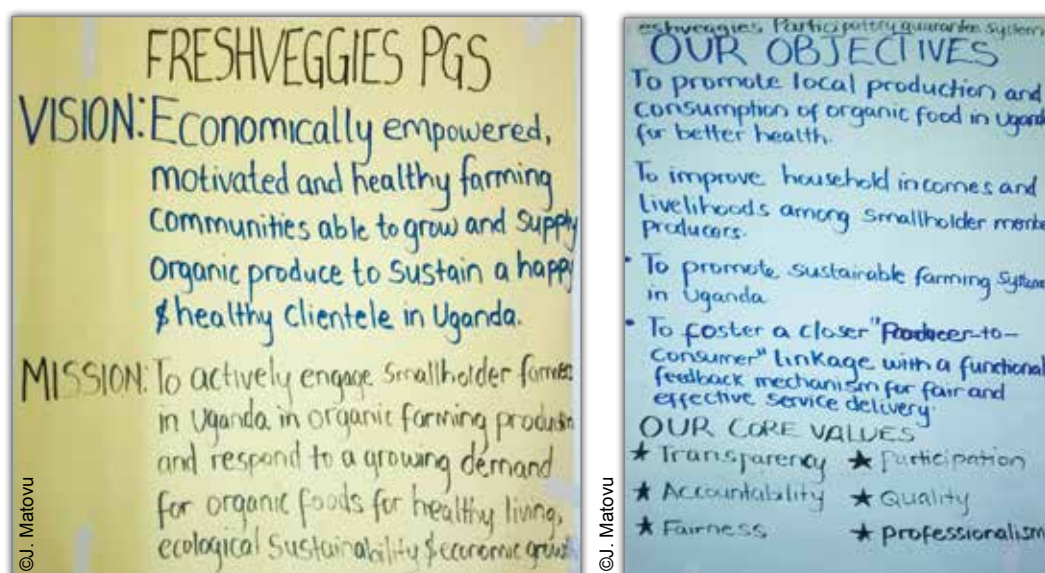 FRESHVEGGIES PGS
VISION: Economically empowered,
motivated and healthy farming
communities able to grow and supply
organic produce to sustain a happy
& healthy clientele in Uganda.
MISSION: To actively engage smallholder farmers
in Uganda in organic farming production
and respond to a growing demand
for organic foods for healthy living,
ecological sustainability & economic growth
©J. Matovu
eshveggies Participatory guarantee system
OUR OBJECTIVES
To promote local production and
consumption of organic food in Ugand
for better health.
To improve household incomes and
Livelihoods among smallholder membe
producers.
• To promote sustainable farming systems
in Uganda
• To foster a closer "Producer-to-
consumer" linkage with a functional
feedback mechanism for fair and
effective service delivery.
OUR CORE VALUES
★ Transparency ★ Participation
★ Accountability ★ Quality
★ Fairness ★ professionalism
©J. Matovu